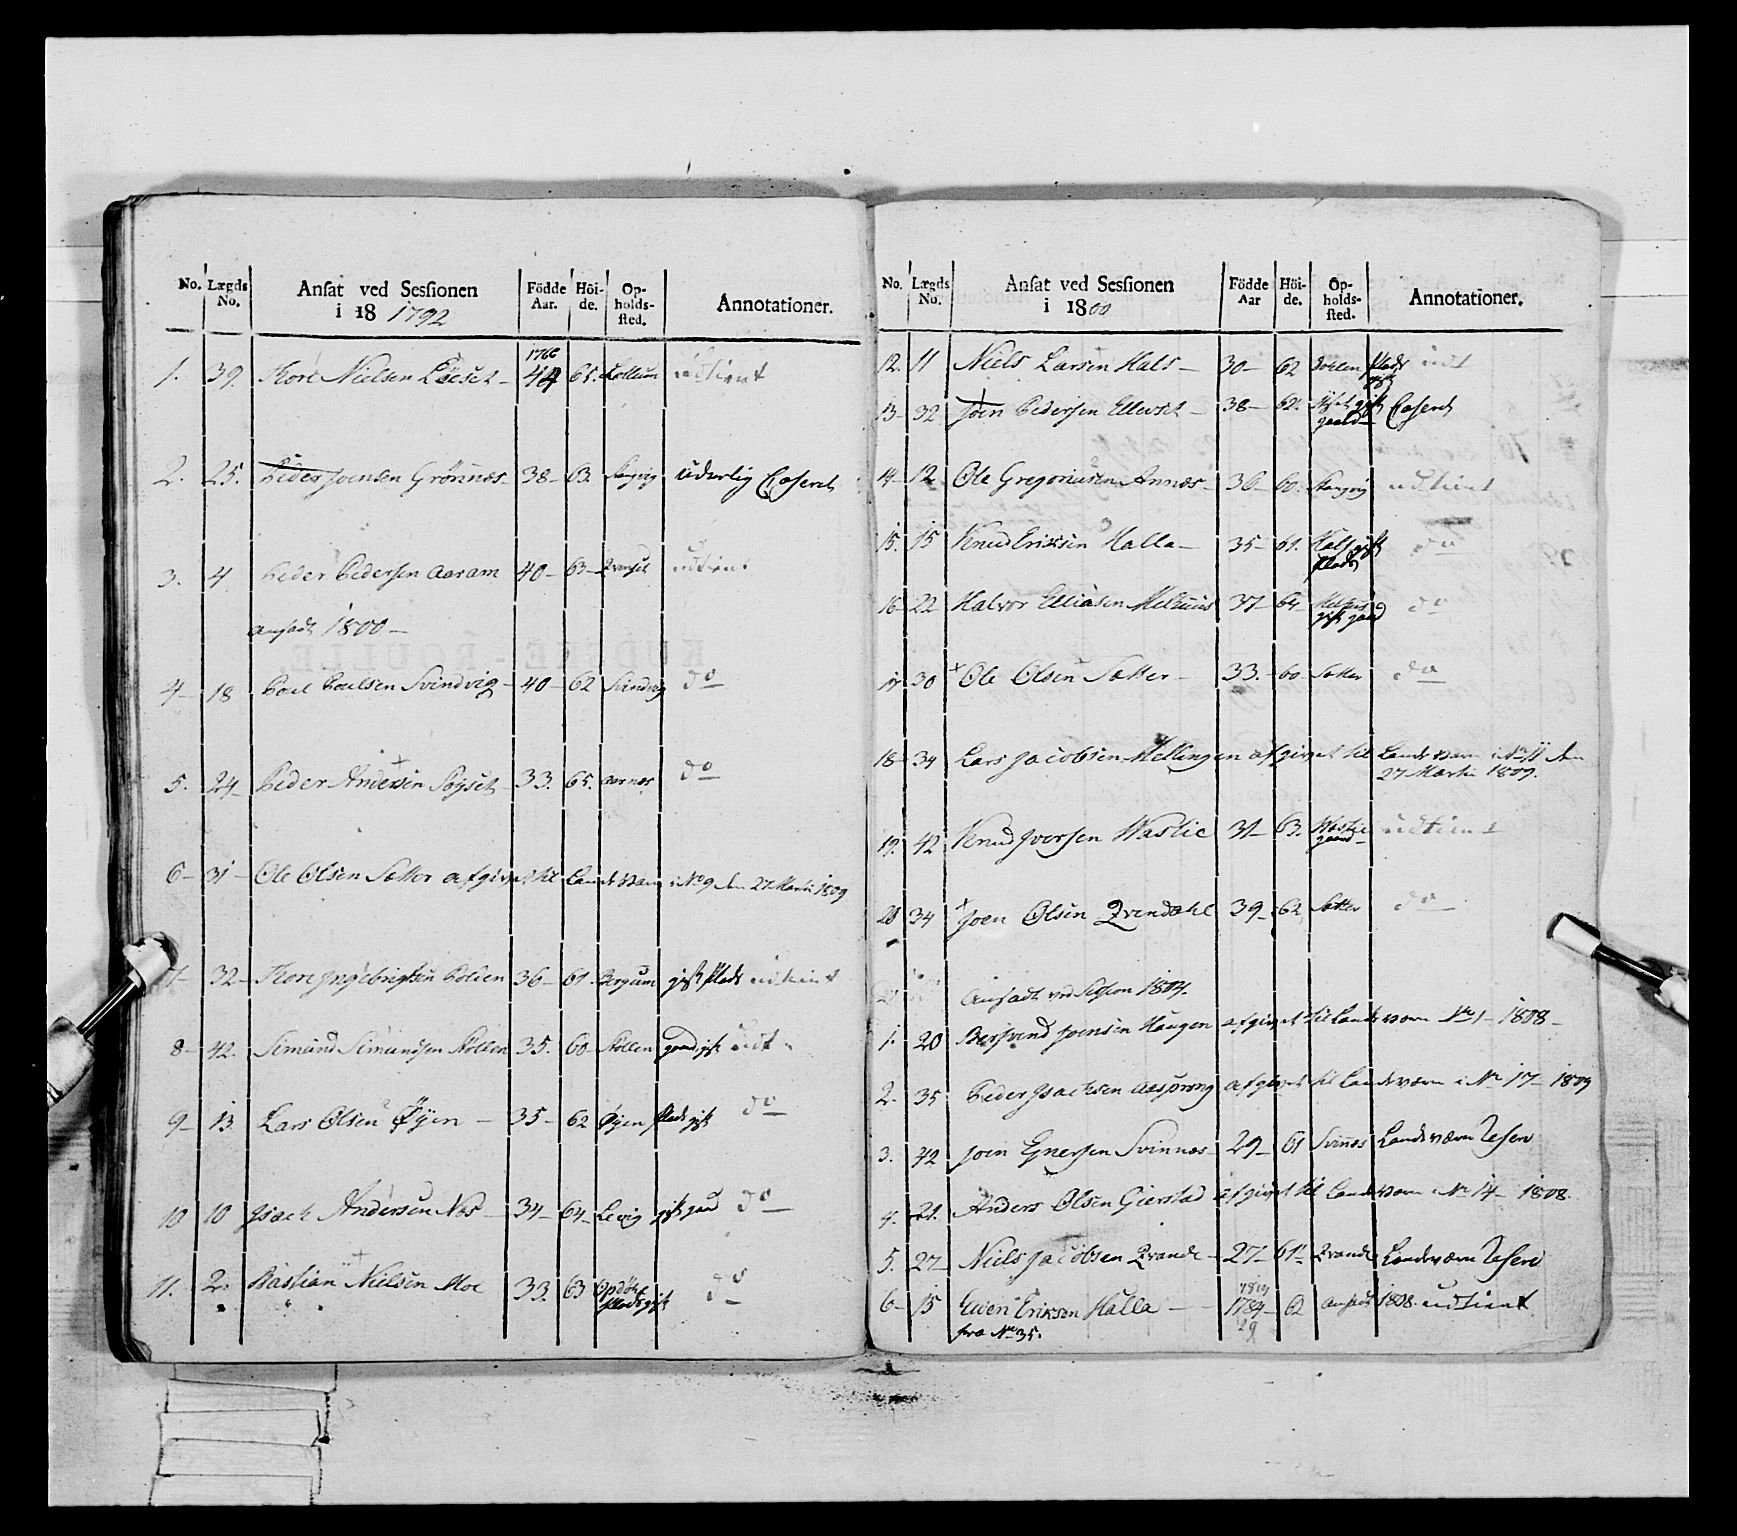 No. Lægds No. Ansat ved Sessionen i 18 1792 Födde Aar. Höi-de. Op-holds-sted. Annotationer.
1. 39. Tore Nielsen 1766 44 65. udtient
2. 25. Peder Joensen Grönnæs 38 63. Stangvig uduelig Casseret
3. 4 Peder Pedersen Aaram 40 63 Qvenset udtient
Ansadt 1800
4 18 Poul Poulsen Svindvig 40 62 Svindvig do
5. 24 Peder Andersen Søyset 33. 65. Aarnæs do
6 31 Ole Olsen Sætter afgivet til Landeværn i No 9 den 27 Martii 1809
7 32 Tore Ingebrigtsen Bolien 36 61. Bergum gift Plads udtient
8 42. Simund Simundsen Stollen 35. 60 Stollen gaard gift udt
9 13 Lars Olsen Øyen 35 62 Øyen Plads gift do
10 10 Isach Andersen Næs 34 64 Levig gift gaard do
11. 2. Bastian Nielsen Moe 33. 63 Opdöll Plads gift do
No. Lægds No. Ansat ved Sessionen i 1800 Födde Aar Höi-de. Op-holds-sted. Annotationer.
12. 11 Niels Larsen Hals 30 62 Plads gift udt
13 32 Joen Pedersen 38 62. gift gaard Casseret
14 12 Ole Gregoriusen Annæs 36 60. Stangvig udtient
15. 15 Knud Eriksen Halla 35 61. Hals gift Plads do
16 22 Halvor Elliasen Melhuus 37 64 Melhuus gift gaard do
17 30 × Ole Olsen Sætter 33. 60 Sætter do
18 34 Lars Jacobsen Mellingen afgivet til Landeværn i No 11 den
27 Martii 1809.
19. 42 Knud Iversen Waslie 31 63. Waslie gaard udtient
20 34 × Joen Olsen Qvendahl 39 62 Sætter do
Ansadt ved Session 1804.
1. 20 Joensen Haugen afgivet til Landeværn No 1 1808
2. 35 Peder Isachsen Aasprong afgivet til Landeværn i No 17 1809
3. 42 Joen Svinnæs 29 61 Svinæs Landeværn Reserv
4. 21. Anders Olsen Gierstad afgivet til Landeværn i No 14 1808.
5. 27 Niels Jacobsen Qvande 27 61 Qvande Landeværn Reserv
6 15 Even Eriksen Halla 1784 62 Ansadt 1808. udtient
fra No 35. 29